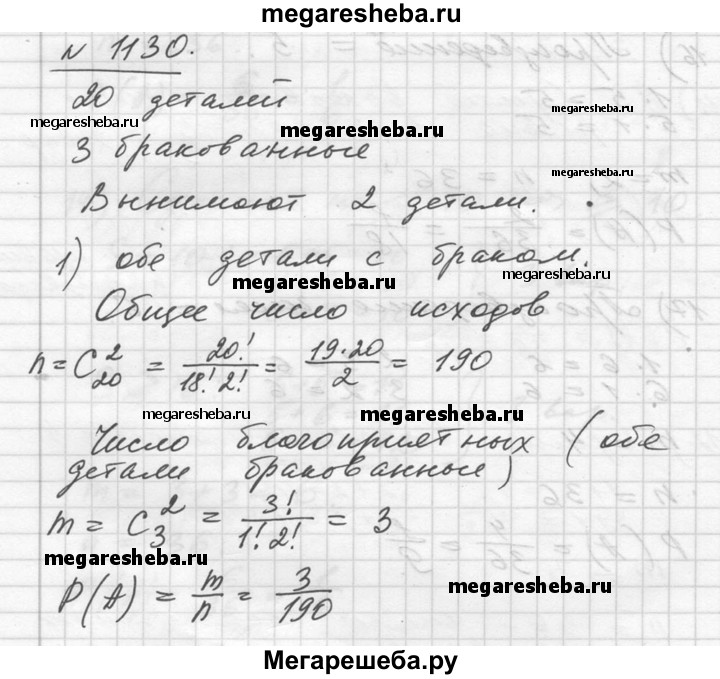 megaresheba.ru
N 1130.
20 деталей
megaresheba.ru
megaresheba.ru
3 бракованные
Вынимают 2 детали.
1) обе детали с браком.
megaresheba.ru
megaresheba.ru
Общее число исходов
n = C₂₀² = 20!/18!2! = 19·20/2 = 190
megaresheba.ru
megaresheba.ru
Число благоприятных (обе
детали бракованные)
m = C₃² = 3!/1!2! = 3
megaresheba.ru
megaresheba.ru
P(A) = m/n = 3/190
Мегарешеба.ру